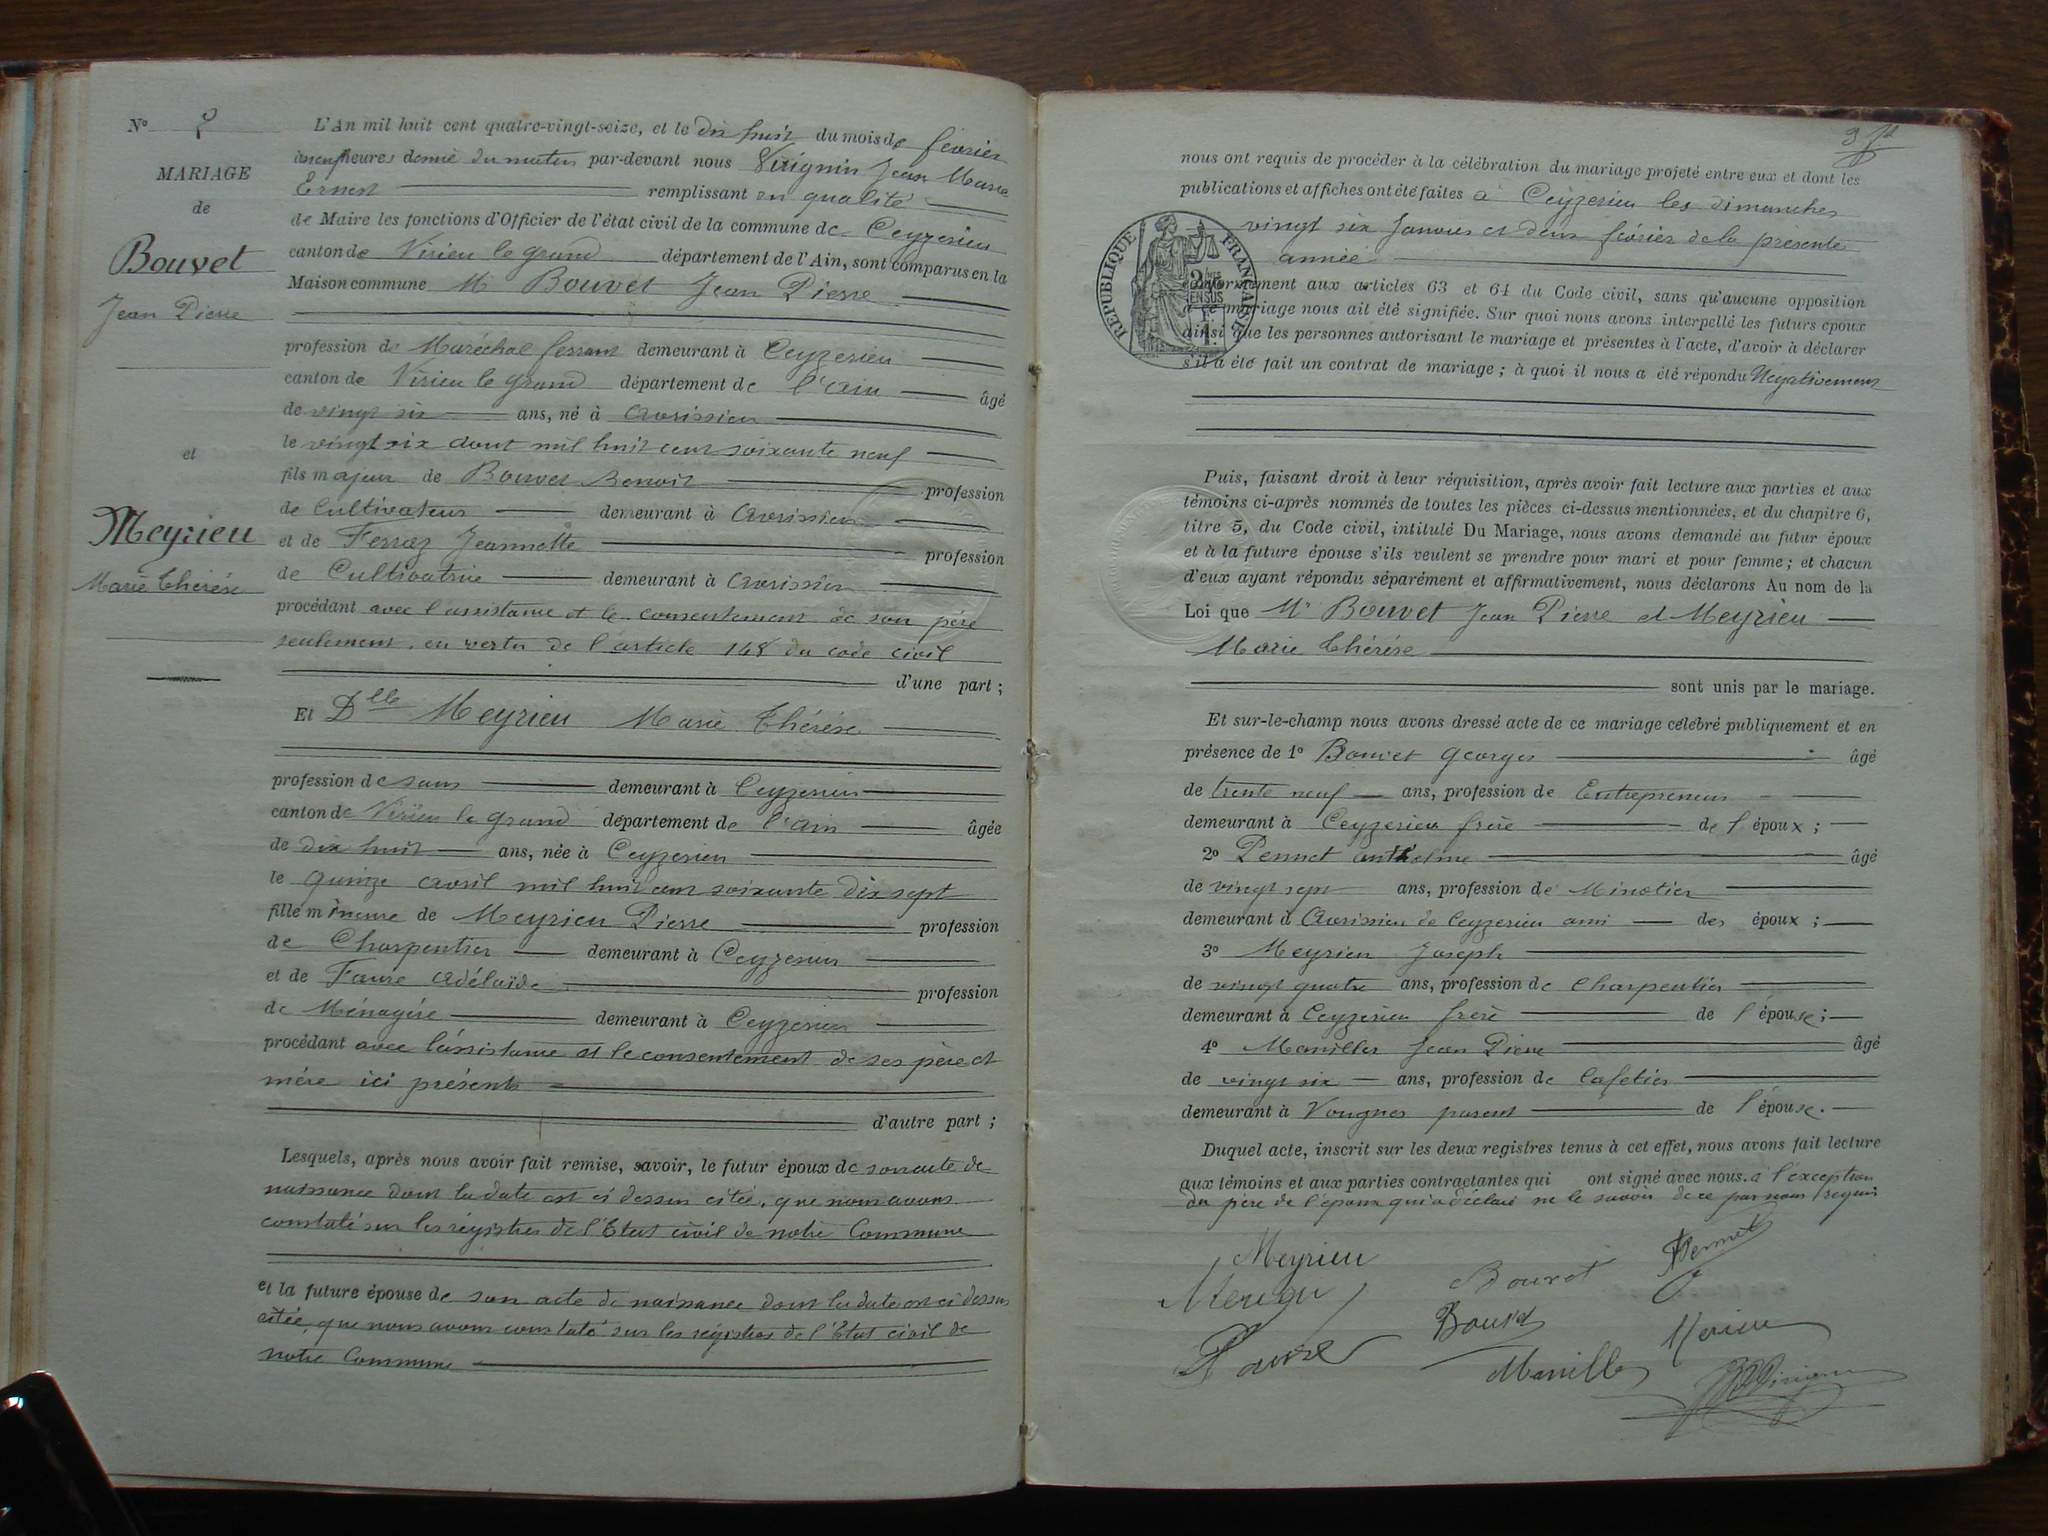 N°
MARIAGE
de
Bouvet
Jean Pierre
et
Meyrieu
Marie Thérèse
L'An mil huit cent quatre-vingt-seize, et le dix huit du mois de février
à neuf heures demie du matin par-devant nous Virignin Jean Marie
Ernest remplissant en qualité
de Maire les fonctions d'Officier de l'état civil de la commune de Ceyzerieu
canton de Virieu le grand département de l'Ain, sont comparus en la
Maison commune M Bouvet Jean Pierre
profession de Maréchal ferrant demeurant à Ceyzerieu
canton de Virieu le grand département de l'Ain âgé
de vingt six ans, né à Avrissieu
le vingt six aout mil huit cent soixante neuf
fils majeur de Bouvet Benoit profession
de Cultivateur demeurant à Avrissieu
et de Ferraz Jeannette profession
de Cultivatrice demeurant à Avrissieu
procédant avec l'assistance et le consentement de son père
seulement, en vertu de l'article 148 du code civil
d'une part ;
Et Dlle Meyrieu Marie Thérèse
profession de sans demeurant à Ceyzerieu
canton de Virieu le grand département de l'Ain âgée
de dix huit ans, née à Ceyzerieu
le quinze avril mil huit cent soixante dix sept
fille mineure de Meyrieu Pierre profession
de Charpentier demeurant à Ceyzerieu
et de Faure Adélaïde profession
de Ménagère demeurant à Ceyzerieu
procédant avec l'assistance et le consentement de ses père et
mère ici présents
d'autre part ;
Lesquels, après nous avoir fait remise, savoir, le futur époux de son acte de
naissance dont la date est ci dessus citée, que nous avons
constaté sur les registres de l'Etat civil de notre Commune
et la future épouse de son acte de naissance dont la date est ci dessus
citée, que nous avons constaté sur les registres de l'Etat civil de
notre Commune
nous ont requis de procéder à la célébration du mariage projeté entre eux et dont les
publications et affiches ont été faites à Ceyzerieu les dimanches
vingt six Janvier et deux février de la présente
année
RÉPUBLIQUE FRANÇAISE
conformément aux articles 63 et 64 du Code civil, sans qu'aucune opposition
à ce mariage nous ait été signifiée. Sur quoi nous avons interpellé les futurs époux
ainsi que les personnes autorisant le mariage et présentes à l'acte, d'avoir à déclarer
s'il a été fait un contrat de mariage ; à quoi il nous a été répondu Négativement
Puis, faisant droit à leur réquisition, après avoir fait lecture aux parties et aux
témoins ci-après nommés de toutes les pièces ci-dessus mentionnées, et du chapitre 6,
titre 5, du Code civil, intitulé Du Mariage, nous avons demandé au futur époux
et à la future épouse s'ils veulent se prendre pour mari et pour femme ; et chacun
d'eux ayant répondu séparément et affirmativement, nous déclarons Au nom de la
Loi que Mr Bouvet Jean Pierre et Meyrieu
Marie Thérèse
sont unis par le mariage.
Et sur-le-champ nous avons dressé acte de ce mariage célébré publiquement et en
présence de 1° Bouvet Georges âgé
de trente neuf ans, profession de Entrepreneur
demeurant à Ceyzerieu frère de l'époux ;
2° Pennet Anthelme âgé
de vingt sept ans, profession de Minotier
demeurant à Avrissieu de Ceyzerieu ami des époux ;
3° Meyrieu Joseph
de vingt quatre ans, profession de Charpentier
demeurant à Ceyzerieu frère de l'épouse ;
4° Manillier Jean Pierre âgé
de vingt six ans, profession de Cafetier
demeurant à Vongnes parent de l'épouse.
Duquel acte, inscrit sur les deux registres tenus à cet effet, nous avons fait lecture
aux témoins et aux parties contractantes qui ont signé avec nous. à l'exception
du père de l'époux qui a déclaré ne le savoir de ce par nous requis
Meyrieu
Bouvet
Pennet
Bouvet
Merieu
Faure
Manillier